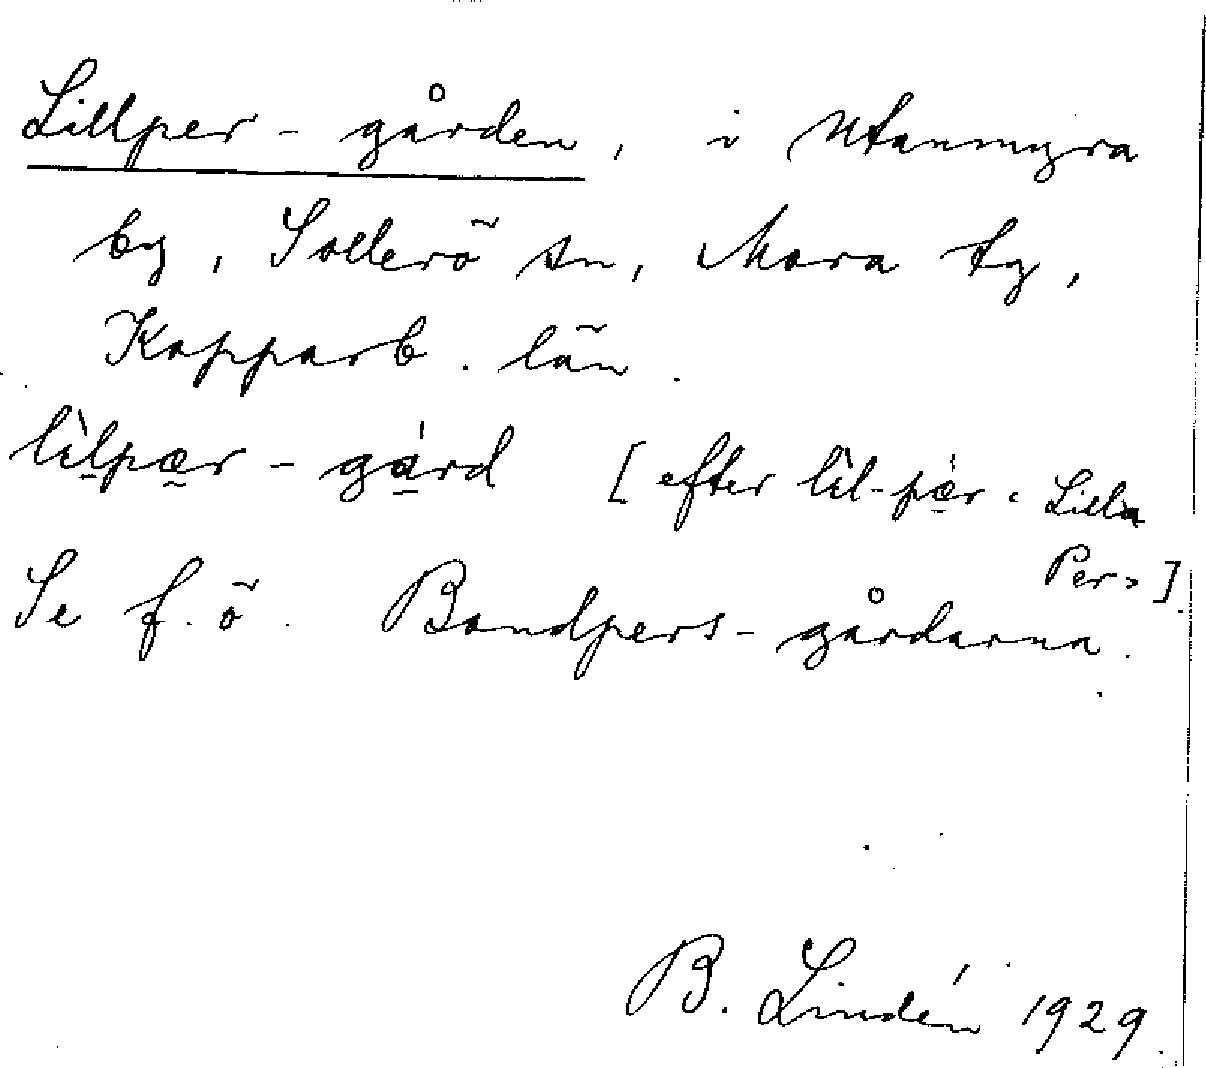 Lillper - gården, i Utanmyra
by, Sollerö sn, Mora tg,
Kopparb. län.
lìlpær - gárd [efter lìl-pǽr. Lilla
Per.]
Se f. ö. Bondpers - gårdarna.
B. Lindén 1929.